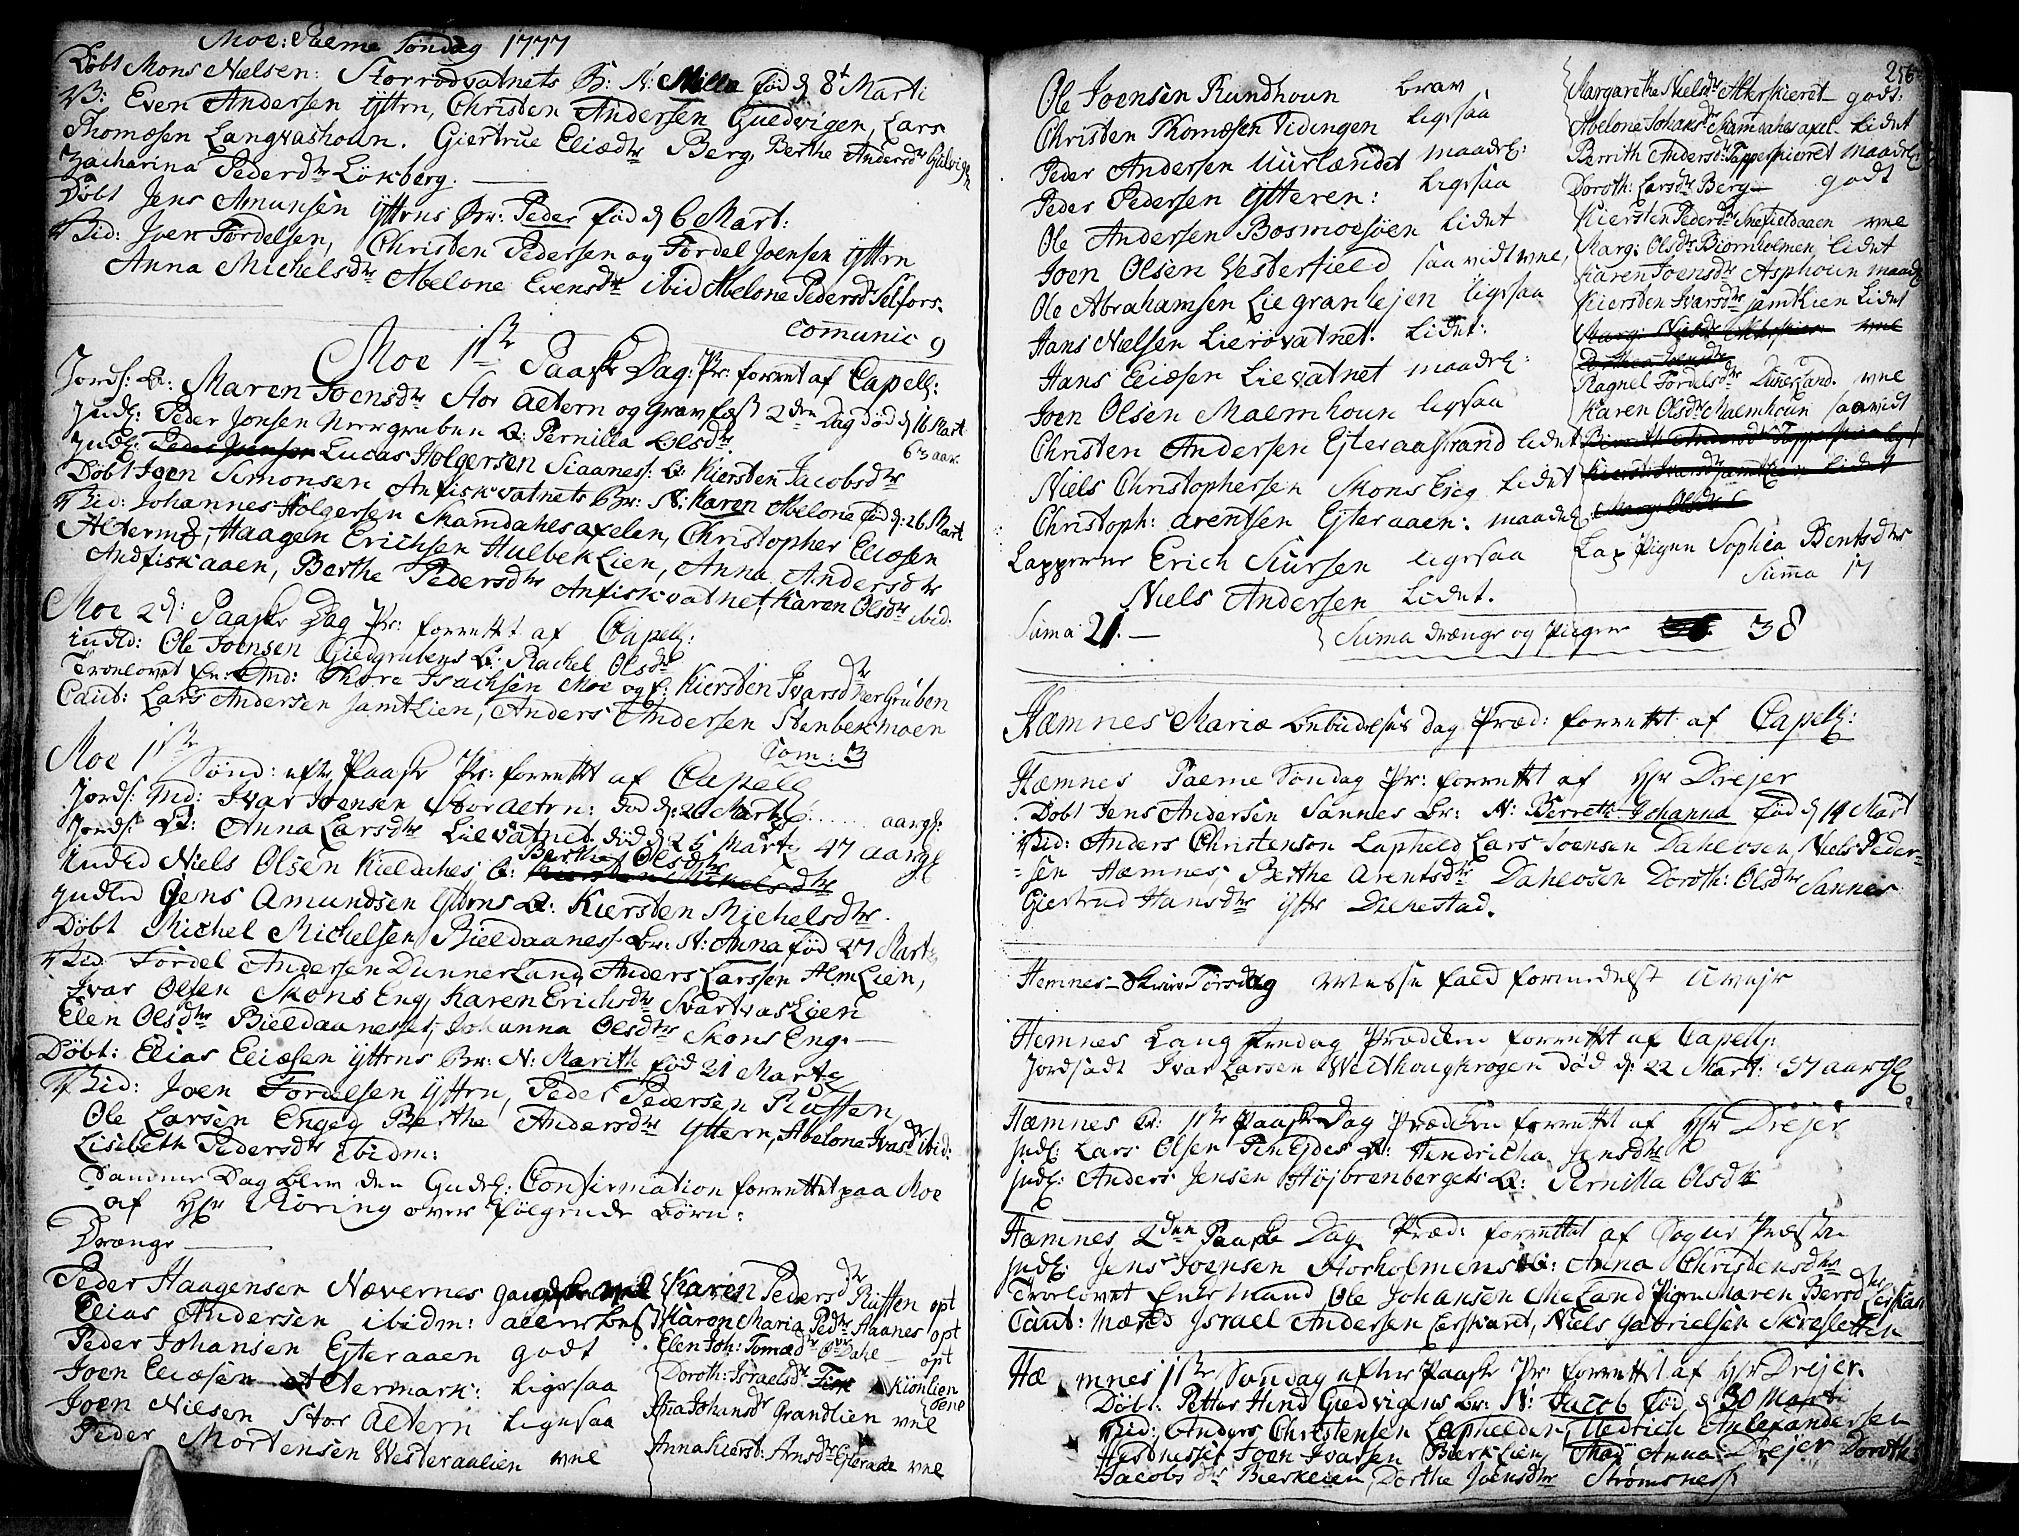 Moe: Palme Søndag 1777
Døbt Mons Nielsen: Storrødvatnets B: N: Milla fød d 8t Marti
B: Even Andersen Yttrn, Christen Andersen Giedvigen, Lars
Thomæsen Langvashoun. Giertrue Eliædtr Berg, Berthe Andersdtr
Zacharina Pedersdtr Lökberg.
Døbt Jens Amunsen Yttrns Br: Peder fød d 6 Mart:
Bid: Joen Tordelsen, Christen Pedersen og Tordel Joensen Yttrn
Anna Michelsdtr Abelone Evensdtr ibid Abelone Pedersdtr Selfors.
Comunic 9
Moe 1ste Paaske Dag: Pr: forret af Capell:
Jords: Q: Maren Joensdtr Stor Altern og Gravfæst 2den Dag død d 16 Mart
63 aar
Indl: Peder Jonsen Nergruben Q: Pernilla Olsdtr
Indl: Lucas Holgersen Staaness: Q: Kiersten Jacobsdtr
Døbt Joen Simonsen Anfiskvatnets Br: N. Karen Abelone fød d: 26 Mart
Bid: Johannes Holgersen Mamdahls axelen, Christopher Eliæsen
Altermo, Haagen Erichsen Hulbeklien, Anna Andersdtr
Andfiskaaen, Berthe Pedersdtr Anfiskvatnet Karen Olsdtr ibid.
Moe 2d: Paaske Dag Pr: forrettet af Capell:
Indld: Ole Joensen Giedgrubens Q: Rachel Olsdtr
Trolovet En: Md: Thore Isachsen Moe og E: Kiersten Ivarsdtr Nergruben
Caut: Lars Andersen Jamtlien, Anders Andersen Stenbekmoen
Com: 3
Moe 1ste Sønd: efter Paaske Pr: forrettet af Capell
Jords: Md: Ivar Joensen Stor Altrn: død d: 20 Marti: ..... aargl:
Jords: Q: Anna Larsdtr Lievatnet død d: 25 Marti 47 aargl
Indled Niels Olsen Kieldahls, Q: Berthe Olsdtr
Indled Jens Amundsen Yttrns Q: Kiersten Michelsdtr.
Døbt Michel Michelsen Bieldaaness. Br: N: Anna fød 27 Mart
Bid Tordel Andersen Dunnerland, Anders Larssen Almlien,
Ivar Olsen Skons Eng, Karen Erichsdtr Svartvaslien
Elen Olsdtr Bieldaanesset, Johanna Olsdtr Skons Eng.
Døbt: Elias Eliæsen Yttrns Br: N: Marith fød 21 Marti
Bid: Joen Tordelsen Yttrn, Peder Pedersen Ruffen,
Ole Larsen Engeg Berthe Andersdtr Yttern, Abelone Ivasdtr ibid:
Lisebeth Pedersdtr ibidm:
Samme Dag blev den Gudel: Confirmation forrettet paa Moe
af Hr Röring over følgende Börn:
Drænge
Peder Haagensen Næverness gandske vel
Elias Andersen ibidm: allerbest
Peder Johansen Ejteraaen godt
Joen Eliæsen Altermark: ligesaa
Joen Nielsen Stor Altern ligesaa
Peder Mortensen Westeraalien vel
Karen Pedersdtr Ruffen opt
Karen Maria Pedtr Aaanes opt
Elen Joh: Tomædtr Dahl opt
Doroth: Israelsdtr Kiönlien
Johansdtr Grandlien vel
Anna Kierst: Arnsdtr Ejteraae vel
256
Ole Joensen Rundhoun brav
Christen Thomæsen Vidingen ligesaa
Peder Andersen Uurlandet maadel:
Peder Pedersen Ytteren: ligesaa
Ole Andersen Bosmoesøen lidet
Joen Olsen Vesterfield saavidt vel,
Ole Abrahamsen Liegranlejen ligesaa
Hans Nielsen Lierøvatnet. Lidet:
Hans Eliæsen Lievatnet maadel:
Joen Olsen Malmhoun ligesaa
Christen Andersen Ejteraastrand lidet
Niels Christophersen Skons Eieg lidet
Christoph: Arentsen Ejteraaen: maadel
Lapperne Erich Siursen ligesaa
Niels Andersen Lidet.
Suma: 21:
Margarethe Nielsdtr Alterskieret godt:
Abelone Johansdtr Mamdahls axel Lidet
Berrith Andersdtr Tapperskieret maadel:
Doroth: Larsdtr Berg godt
Kiersten Pedersdtr Snefieldaaen vel
Marg: Olsdtr Biörnholmen lidet
Karen Joensdtr Asphoun maadel
Kiersten Ivarsdtr Jamtlien Lidet
Ragnel Tordelsdtr Dunnerland. vel
Karen Olsdtr Malmhoun saavidt
Lap Pigen Sophia Bentsdtr
Suma 17
Suma drænge og Piigene 38
Hæmnes Mariæ Bebudelses dag Præd: forrettet af Capell:
Hæmnes Palme Søndag Pr: forrettet af Hr Drejer
Døbt Jens Andersen Sannes Br: N: Berreth Johanna fød d 14 Mart
Bid: Anders Christenson Lapheld Lars Joensen Dahlosen, Niels Peder-
sen Hæmnes, Berthe Arentsdtr Dahlosen Doroth: Olsdtr Sannes
Giertrud Hansdtr Yttr Dilkestad.
Hemnes Skier Torsdag Messe fald formedelst Uvejr
Hemnes Lang fredag Prædiken forrettet af Capell:
Jordsadt Ivar Larsen Withougkrogen død d: 22 Mart: 37 aar gl
Hæmnes 1ste Paaske Dag Prædiken forrettet af Hr Drejer
Indl: Lars Olsen Finejdes Q: Hendricha Jensdtr
Indl: Anders Jensen Højbrenbergets Q: Pernilla Olsdtr
Hæmnes 2den Paaske Dag Præd: forrettet af Sogne Præsten
Indl: Jens Joensen Storholmens Q: Anna Christensdtr
Trolovet Enke Mand Ole Johansen Meland Pigen Maren Bersdtr
Caut: Mænd Israel Andersen Leerskaret, Niels Gabrielsen Skresletten
Hæmnes 1ste Søndag efter Paaske Pr forrettet af Hr Drejer.
Døbt. Petter Hind Giedvigens Br: N: Jacob fød d 30 Marti
Bid: Anders Christensen Laphelden, Hedrich Alexandersen
Hestnesset Joen Ivarsen Bierklien, Anna Drejer Doroth:
Jacobsdtr Bierkelien, Dorthe Joensdtr Strømsness